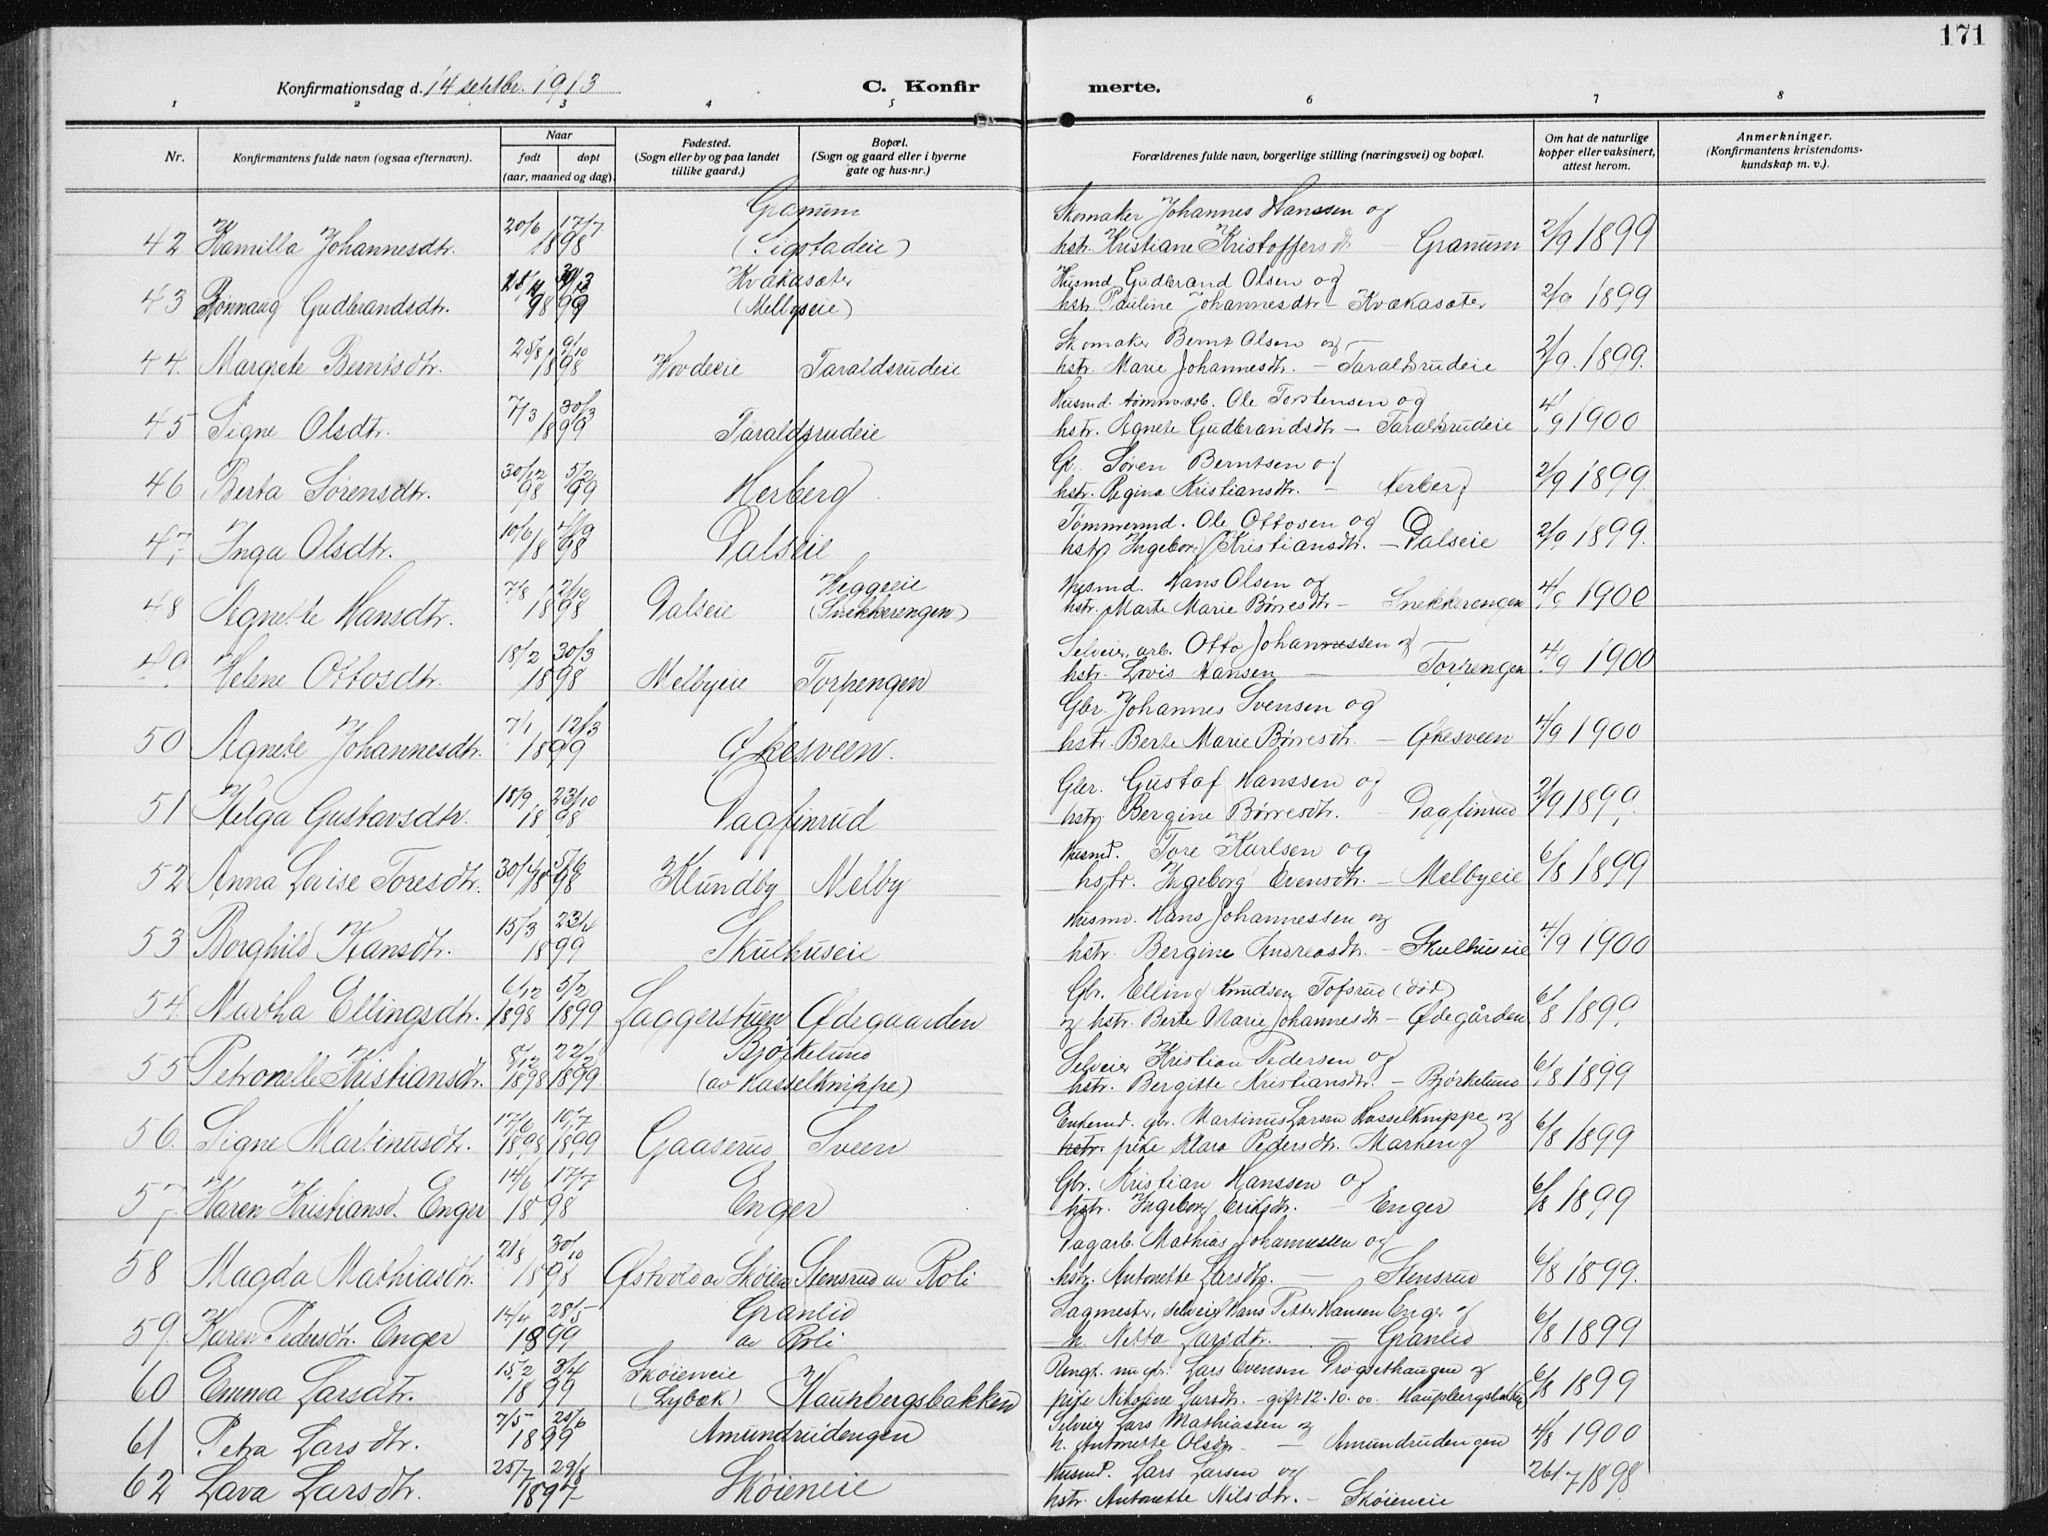 171
Konfirmationsdag d. 14 septbr. 1913
C. Konfir merte.
1 2 3 4 5 6 7 8
Nr.
Konfirmantens fulde navn (ogsaa efternavn).
Naar
født
døpt
(aar, maaned og dag).
Fødested.
(Sogn eller by og paa landet
tillike gaard.)
Bopæl.
(Sogn og gaard eller i byerne
gate og hus-nr.)
Forældrenes fulde navn, borgerlige stilling (næringsvei) og bopæl.
Om hat de naturlige
kopper eller vaksinert,
attest herom.
Anmerkninger.
(Konfirmantens kristendoms-
kundskap m. v.).
42 Kamilla Johannesdtr. 20/6 17/7 1898 Granum (Sigstadeie) Skomaker Johannes Hanssen og
hstr. Kristiane Kristoffersdt. – Granum 2/9 1899
43 Rønnaug Gudbrandsdtr. Kvækasæter (Melbyeie) Husmd. Gudbrand Olsen og
hstr. Pauline Johannesdtr – Kvækasæter 2/9 1899
44. Margrete Berntsdtr. 25/8 9/10 1898 Hovdeeie Taraldsrudeie Skomaker Bernt Olsen og
hstr. Marie Johannesdtr. – Taraldsrudeie 2/9. 1899.
45 Signe Olsdtr. 7/3 30/3 1899 Taraldsrudeie Husmd. tømmerarb. Ole Torstensen og
hstr. Agnete Gudbrandsdtr – Taraldsrudeie 4/9 1900
46 Berta Sørensdtr. 30/12 98 5/2 99 Herberg Gb. Søren Berntsen og
hstr. Regina Kristiansdtr. – Herberg 2/9 1899.
47. Inga Olsdtr. 10/6 1898 Dalseie Tømmermd. Ole Ottosen og
hstr Ingeborg Kristiansdtr. – Dalseie 2/9 1899.
48 Agnette Hansdtr. 7/8 2/10 1898 Dalseie Heggeeie (Snekkerengen) Husmd. Hans Olsen og
hstr. Marte Marie Børresdtr – Snekkerengen 4/9 1900
49. Helene Ottosdtr. 18/2 30/3 1898 Melbyeie Torpengen Selveier, arb. Otto Johannessen og
hstr. Lovis Hansen – Torpengen 4/9 1900
50 Agnete Johannesdtr. 7/1 12/3 1899 Økesveen. Gbr. Johannes Svensen og
hstr. Berte Marie Børresdtr. – Økesveen 4/9 1900
51 Helga Gustavsdtr. 18/9 23/10 1898 Dagfinrud Gbr. Gustaf Hanssen og
hstr Bergine Børresdtr. – Dagfinrud 2/9 1899.
52 Anna Lovise Toresdtr. 30/4 5/6 1898 Klundby Melby Husmd. Tore Karlsen og
hstr. Ingeborg Evensdtr. – Melbyeie 6/8 1899
53 Borghild Hansdtr. 15/3 23/4 1899 Skulhuseie Husmd. Hans Johannessen og
hstr. Bergine Andreasdtr. – Skulhuseie 4/9 1900
54 Martha Ellingsdtr. 6/12 1898 5/2 1899 Laggerstuen Ødegaarden Gbr. Elling Knudsen Tofsrud (død)
og hstr. Berte Marie Johannesdt – Ødegården 6/8 1899.
55 Petronelle Kristiansdtr. 8/12 1898 22/2 1899 Bjørkelund (av Kasselknippe) Selveier Kristian Pedersen og
hstr. Bergitte Kristiansdtr. – Bjørkelund 6/8 1899
56. Signe Martinusdtr. 17/6 1898 10/7 1899 Gaaserud Sveen Enkemd. gbr. Martinus Larsen Kasselknippe og
hstr. pike Klara Pedersdtr. Markeng 6/8 1899
57. Karen Kristiansd. Enger 14/6 17/7 1898 Enger Gbr. Kristian Hanssen og
hstr. Ingeborg Eriksdtr. – Enger 6/8 1899
58 Magda Mathiasdtr. 21/8 30/10 1898 Østvold av Skøien Stensrud av Roli Dagarb. Mathias Johannessen og
hstr. Antonette Larsdtr. – Stensrud 6/8 1899.
59. Karen Pedersdtr. Enger 14/4 28/5 1899 Granlid av Roli Sagmester, selveier Hans Petter Hansen Enger og
h. Netta Larsdtr. – Granlid 6/8 1899
60 Emma Larsdtr. 15/2 3/4 1899 Skøieneie (Lybæk) Haupbergsbakken Ungk. nu gbr. Lars Evensen Drogsethaugen og
pike Nikoline Larsdtr. – gift 12.10.00 Haupbergsbakken 6/8 1899
61 Petra Larsdtr. 7/5 25/6 1899 Amundrudengen Selveier Lars Mathiassen og
h. Antonette Olsdtr – Amundrudengen 4/8 1900
62 Lava Larsdtr. 25/7 29/8 1897 Skøieneie Husmd. Lars Larsen og
hstr. Antonette Nilsdtr. – Skøieneie 26/7 1898